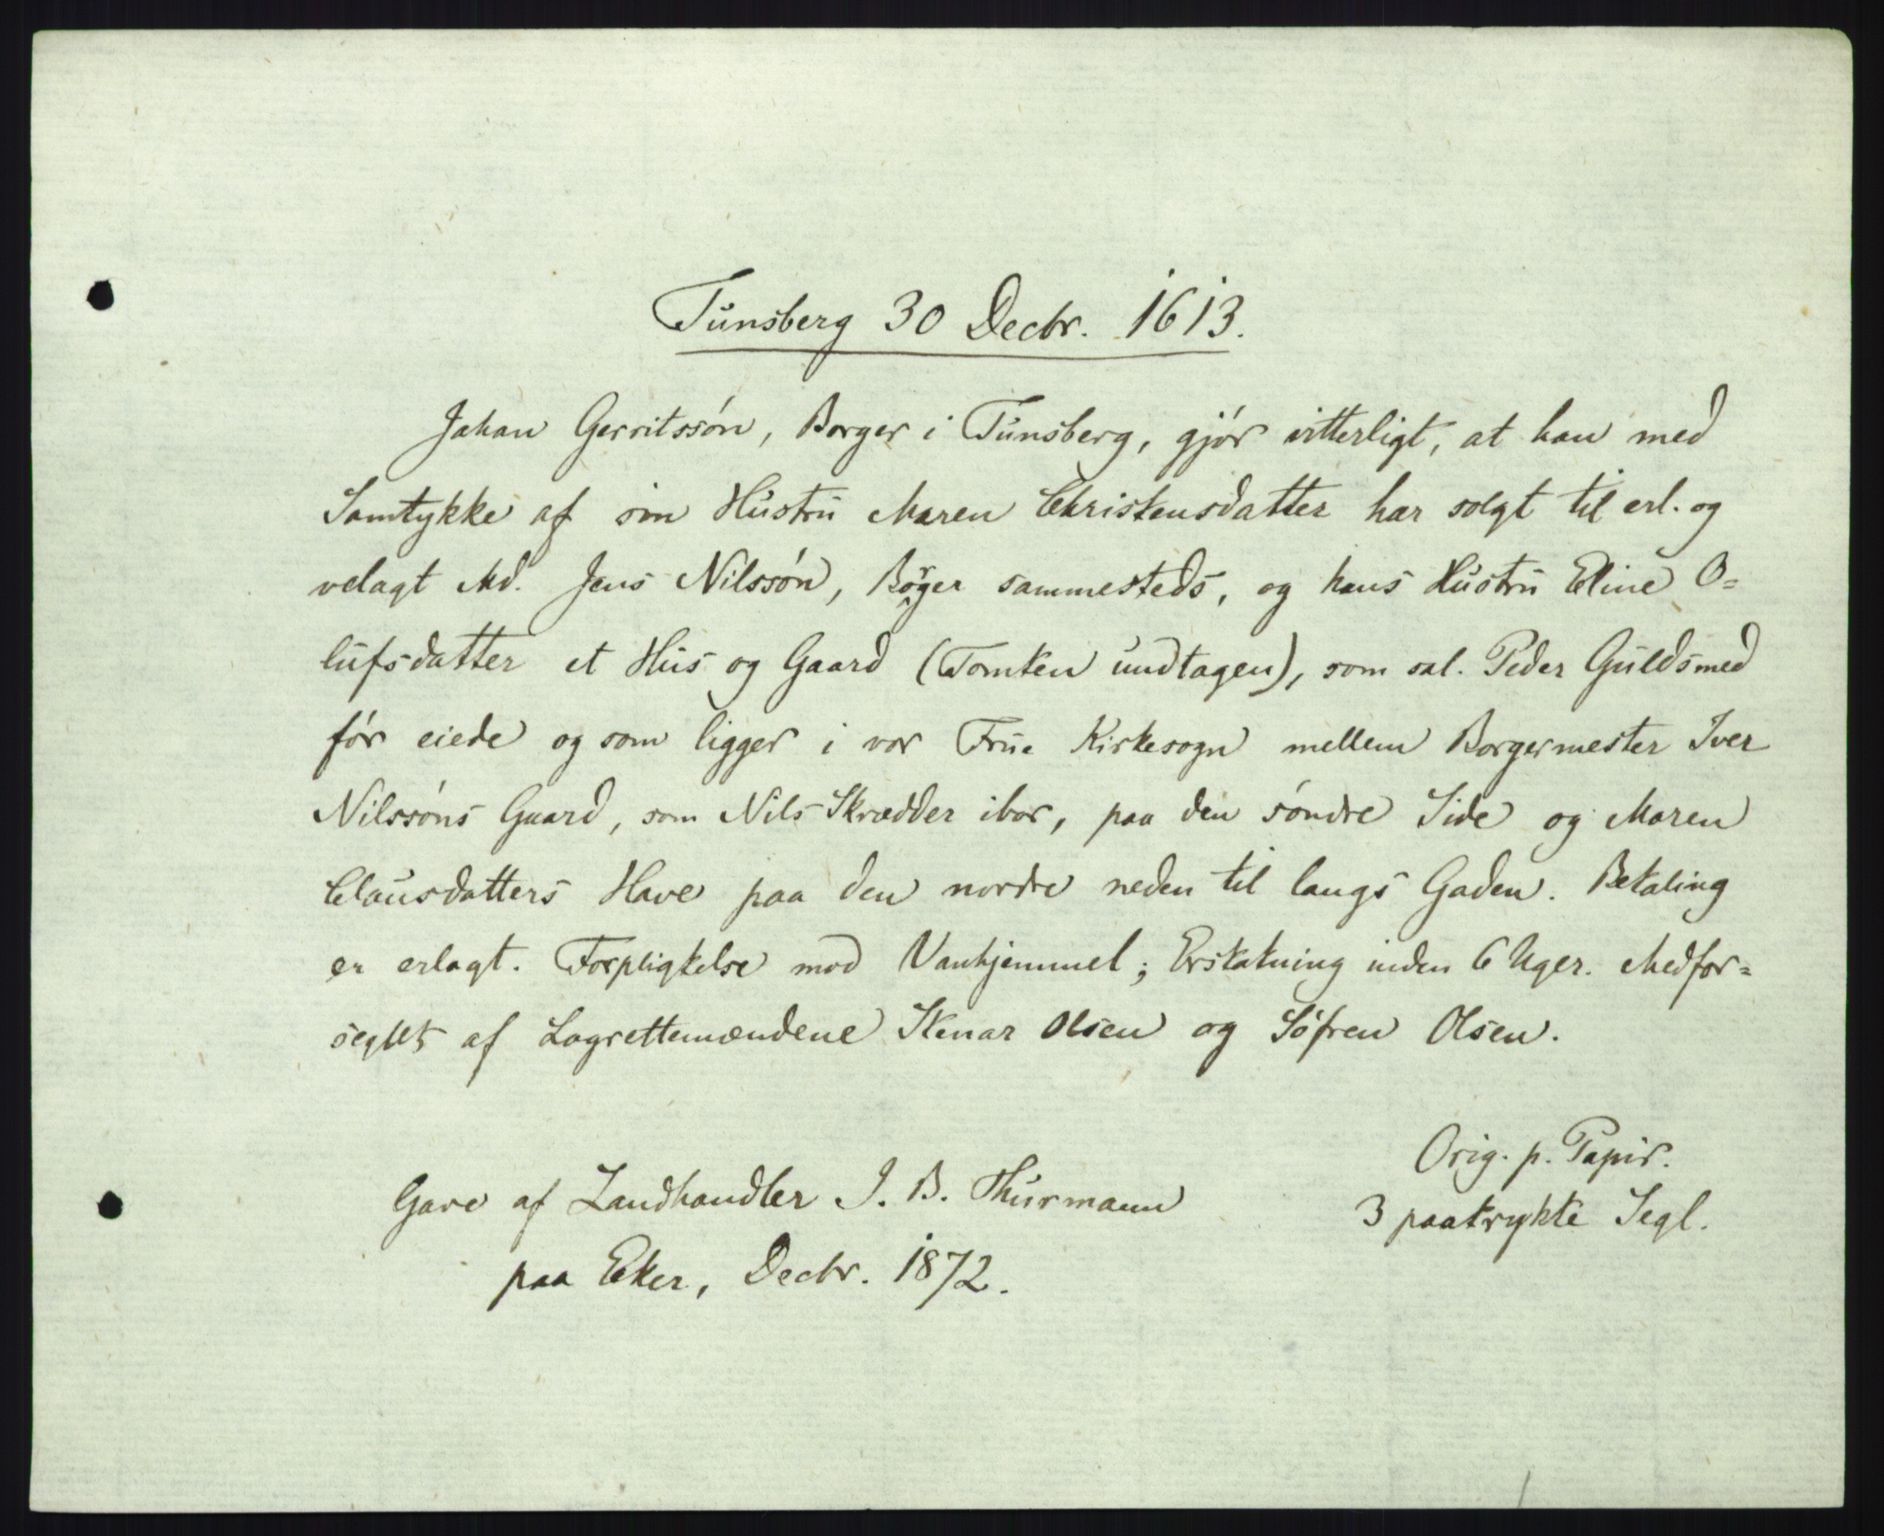 Tunsberg 30 Decbr. 1613.
Johan Gerritssøn, Borger i Tunsberg, gjør vitterligt, at han med
Samtykke af sin Hustru Maren Christensdatter har solgt til erl. og
velagt Md. Jens Nilssøn, Borger sammesteds, og hans Hustru Eline O=
lufsdatter et Hus og Gaard (Tomten undtagen), som sal. Peder Guldsmed
før eiede og som ligger i vor Frue Kirkesogn mellem Borgermester Iver
Nilssøns Gaard, som Nils Skrædder ibor, paa den søndre Side og Maren
Clausdatters Have paa den nordre neden til langs Gaden. Betaling
er erlagt. Forpligtelse mod Vanhjemmel; Erstatning inden 6 Uger. Medfor=
seglet af Lagrettemændene Stenar Olsen og Søfren Olsen.
Orig. p. Papir.
3 paatrykte Segl.
Gave af Landhandler J. B. Thurmann
paa Eker, Decbr. 1872.